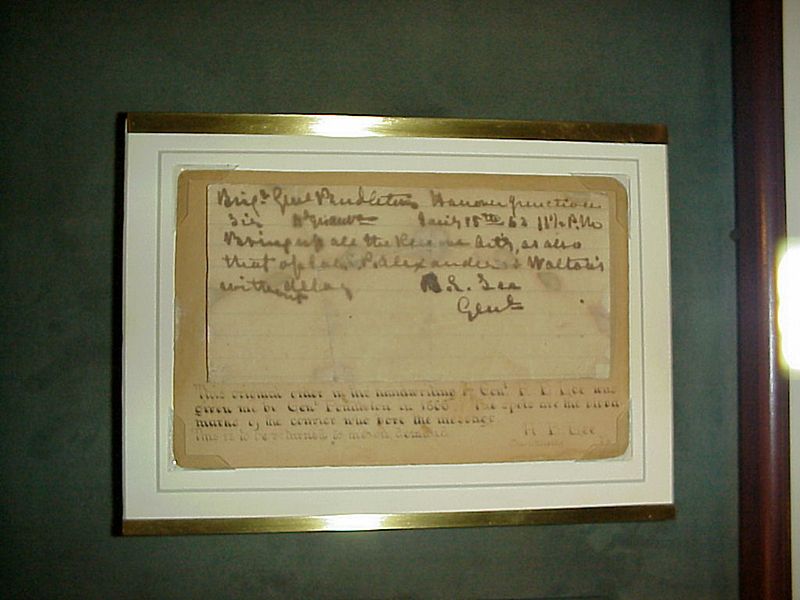 Brigr Genl Pendleton Hanover Junction
Sir 63 11½ P.M
Bring up all the Reserve Arty, as also
that of Col. P. Alexander & Walton's
without delay R. E. Lee
Genl
This original order in the handwriting of Genl R. E. Lee was
given me by Genl Pendleton in 1866 The spots are the blood
marks of the courier who bore the message
This is to be returned to me on demand. H. E. Lee